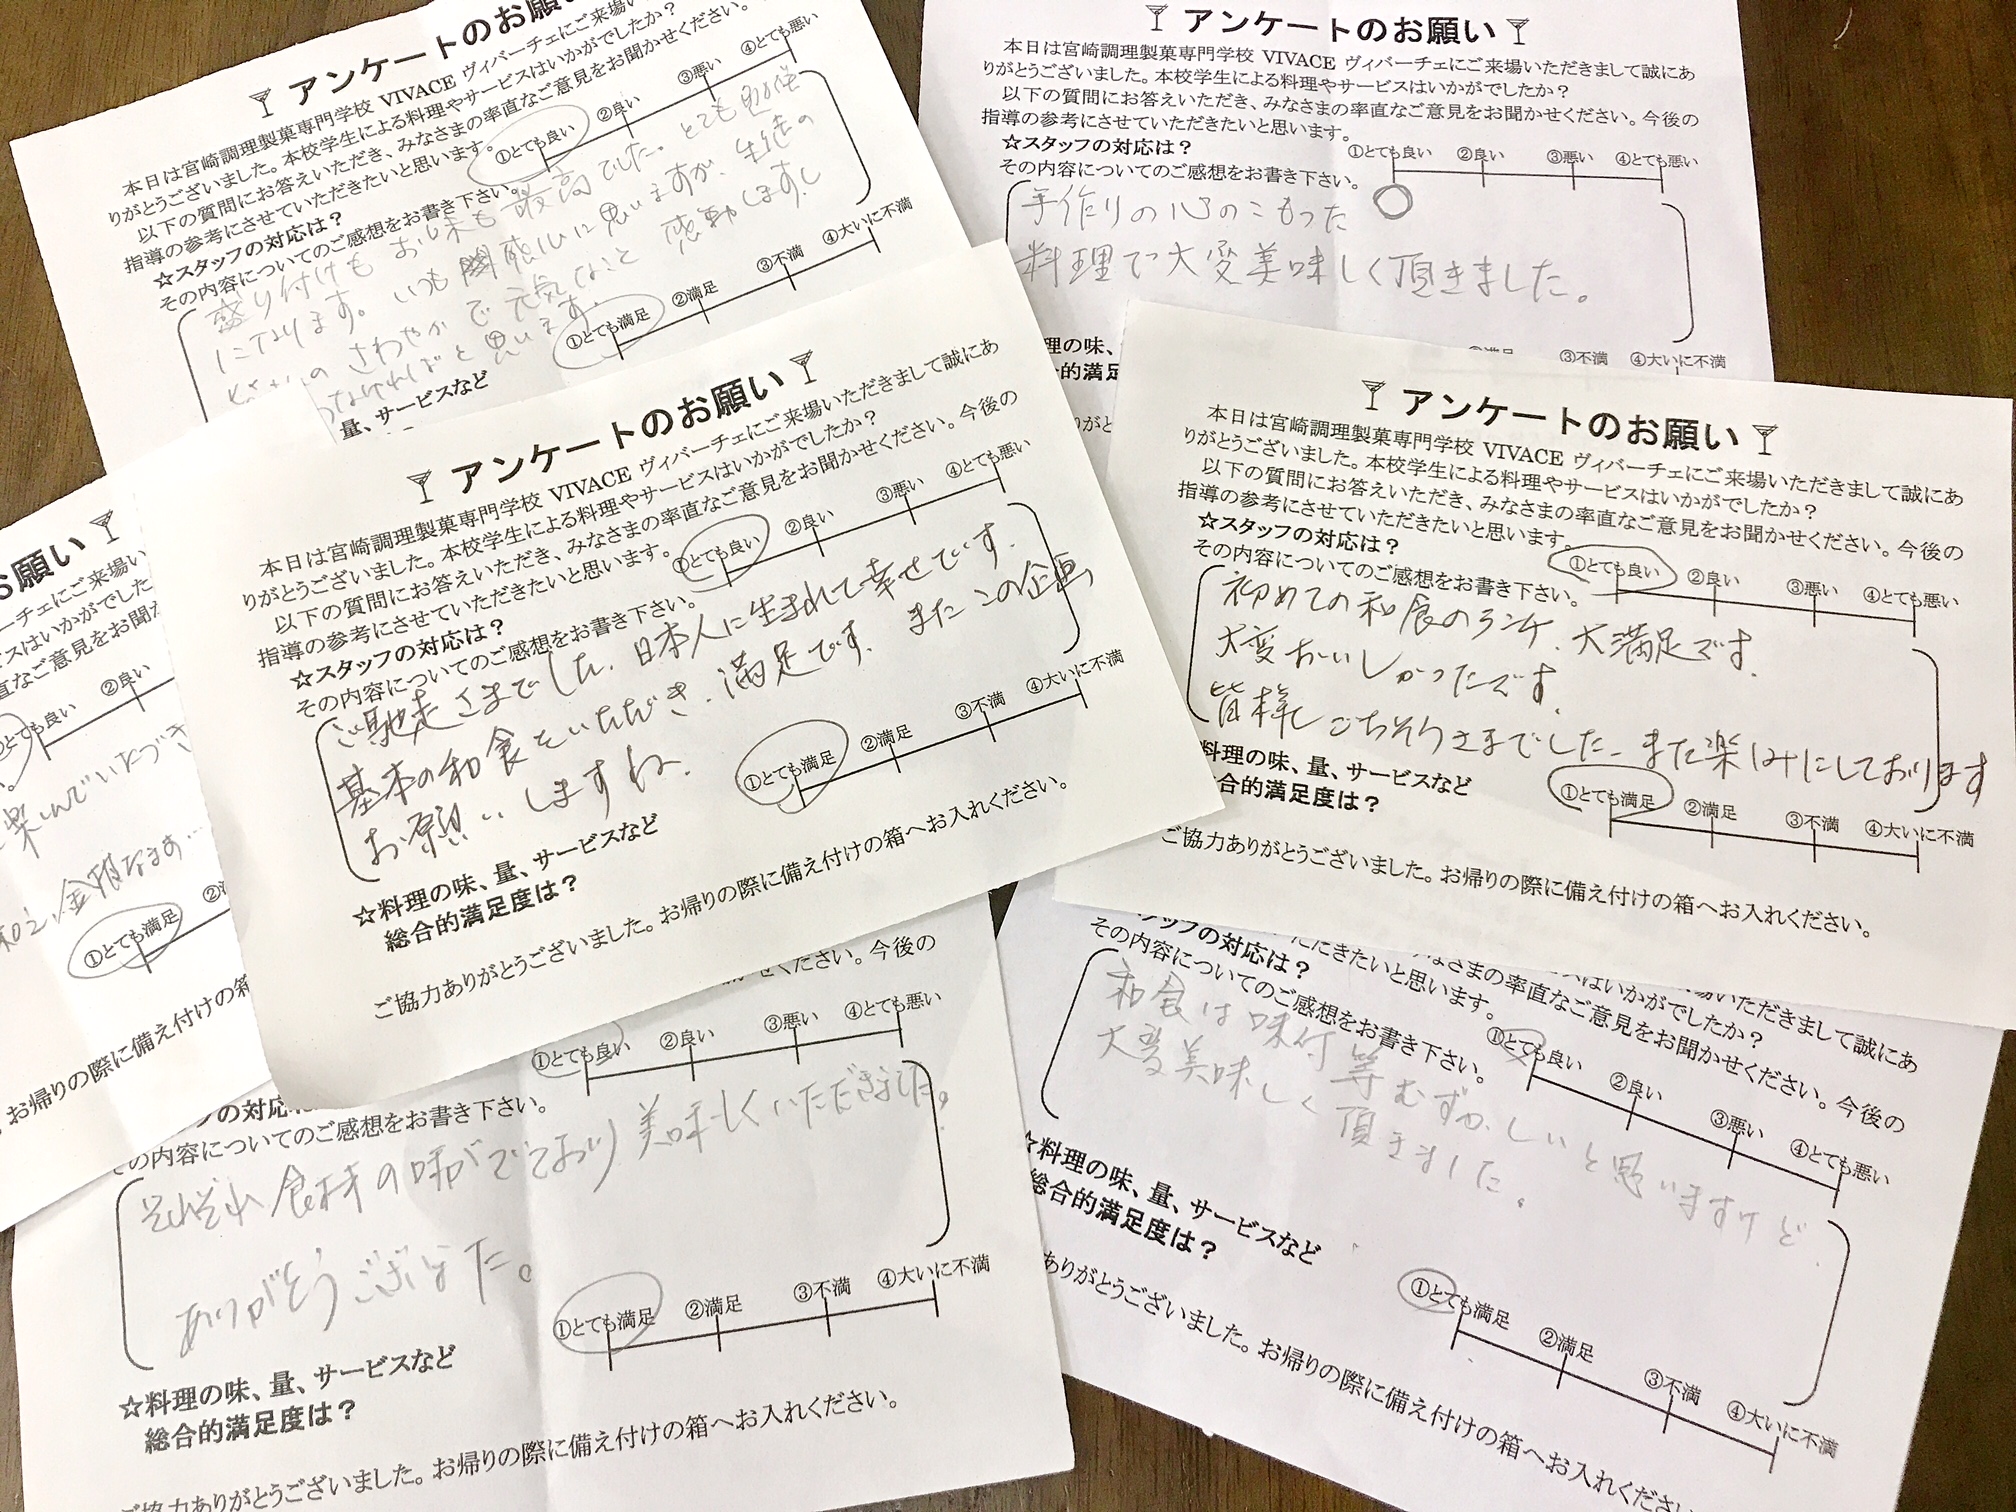 アンケートのお願い
本日は宮崎調理製菓専門学校 VIVACE ヴィバーチェにご来場い
りがとうございました。本校学生による料理やサービスはいかがでしたか？
以下の質問にお答えいただき、みなさまの率直なご意見をお聞かせください。
指導の参考にさせていただきたいと思います。
☆スタッフの対応は？
①とても良い ②良い ③悪い ④とても悪い
その内容についてのご感想をお書き下さい。
盛り付けもお味も最高でした。とても
になります。いつも関心に思いますが、生徒の
さわやかで元気なこと 感動します。
なければと思います。
①とても満足 ②満足 ③不満 ④大いに不満
量、サービスなど
アンケートのお願い
本日は宮崎調理製菓専門学校 VIVACE ヴィバーチェにご来場いただきまして誠にあ
りがとうございました。本校学生による料理やサービスはいかがでしたか？
以下の質問にお答えいただき、みなさまの率直なご意見をお聞かせください。今後の
指導の参考にさせていただきたいと思います。
☆スタッフの対応は？
①とても良い ②良い ③悪い ④とても悪い
その内容についてのご感想をお書き下さい。
手作りの心のこもった
料理で大変美味しく頂きました。
理の味、
的満足
③不満 ④大いに不満
アンケートのお願い
本日は宮崎調理製菓専門学校 VIVACE ヴィバーチェにご来場いただきまして誠にあ
りがとうございました。本校学生による料理やサービスはいかがでしたか？
以下の質問にお答えいただき、みなさまの率直なご意見をお聞かせください。今後の
指導の参考にさせていただきたいと思います。
☆スタッフの対応は？
①とても良い ②良い ③悪い ④とても悪い
その内容についてのご感想をお書き下さい。
ご馳走さまでした。日本人に生まれて幸せです。
基本の和食をいただき、満足です。またこの企画
お願いしますね。
①とても満足 ②満足 ③不満 ④大いに不満
☆料理の味、量、サービスなど
総合的満足度は？
ご協力ありがとうございました。お帰りの際に備え付けの箱へお入れください。
アンケートのお願い
本日は宮崎調理製菓専門学校 VIVACE ヴィバーチェにご来場いただきまして誠にあ
りがとうございました。本校学生による料理やサービスはいかがでしたか？
以下の質問にお答えいただき、みなさまの率直なご意見をお聞かせください。今後の
指導の参考にさせていただきたいと思います。
☆スタッフの対応は？
①とても良い ②良い ③悪い ④とても悪い
その内容についてのご感想をお書き下さい。
初めての和食のランチ、大満足です。
大変おいしかったです。
皆様ごちそうさまでした。また楽しみにしております
料理の味、量、サービスなど
合的満足度は？
①とても満足 ②満足 ③不満 ④大いに不満
ご協力ありがとうございました。お帰りの際に備え付けの箱へお入れください。
お願い
ーチェにご来場い
スはいかがでした
ご意見をお聞か
とても良い ②良い
楽しんでいただき
①とても満足
お帰りの際に備え付けの箱
ください。今後の
①とても良い ②良い ③悪い ④とても悪い
フの対応
その内容についてのご感想をお書き下さい。
それぞれ食材の味がでており美味しくいただきました。
ありがとうございました。
①とても満足 ②満足 ③不満 ④大いに不満
☆料理の味、量、サービスなど
総合的満足度は？
ご協力ありがとうございました。お帰りの際に備え付けの箱へお入れください。
場いただきまして誠にあ
はいかがでしたか？
なさまの率直なご意見をお聞かせください。今後の
ただきたいと思います。
タッフの対応は？
①とても良い ②良い ③悪い ④とても悪い
その内容についてのご感想をお書き下さい。
和食は味付等むずかしいと思いますけど
大変美味しく頂きました。
☆料理の味、量、サービスなど
総合的満足度は？
①とても満足 ②満足 ③不満 ④大いに不満
ありがとうございました。お帰りの際に備え付けの箱へお入れくださ